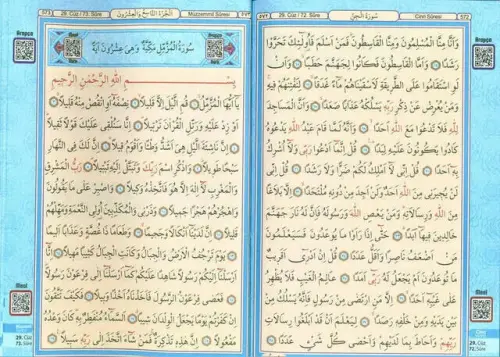 572 سُورَةُ الْجِنِّ Cinn Sûresi 29. Cüz / 72. Sûre
Arapça
وَاَنَّا مِنَّا الْمُسْلِمُونَ وَمِنَّا الْقَاسِطُونَ فَمَنْ اَسْلَمَ فَاُولٰئِكَ تَحَرَّوْا
رَشَدًا ﴿١٤﴾ وَاَمَّا الْقَاسِطُونَ فَكَانُوا لِجَهَنَّمَ حَطَبًا ﴿١٥﴾ وَاَنْ
لَوِ اسْتَقَامُوا عَلَى الطَّرِيقَةِ لَاَسْقَيْنَاهُمْ مَاءً غَدَقًا ﴿١٦﴾ لِنَفْتِنَهُمْ فِيهِ
وَمَنْ يُعْرِضْ عَنْ ذِكْرِ رَبِّهِ يَسْلُكْهُ عَذَابًا صَعَدًا ﴿١٧﴾ وَاَنَّ الْمَسَاجِدَ
لِلّٰهِ فَلَا تَدْعُوا مَعَ اللّٰهِ اَحَدًا ﴿١٨﴾ وَاَنَّهُ لَمَّا قَامَ عَبْدُ اللّٰهِ يَدْعُوهُ
كَادُوا يَكُونُونَ عَلَيْهِ لِبَدًا ﴿١٩﴾ قُلْ اِنَّمَا اَدْعُوا رَبِّي وَلَا اُشْرِكُ
بِهِ اَحَدًا ﴿٢٠﴾ قُلْ اِنِّي لَا اَمْلِكُ لَكُمْ ضَرًّا وَلَا رَشَدًا ﴿٢١﴾ قُلْ اِنِّي
لَنْ يُجِيرَنِي مِنَ اللّٰهِ اَحَدٌ وَلَنْ اَجِدَ مِنْ دُونِهِ مُلْتَحَدًا ﴿٢٢﴾ اِلَّا بَلَاغًا
مِنَ اللّٰهِ وَرِسَالَاتِهِ وَمَنْ يَعْصِ اللّٰهَ وَرَسُولَهُ فَاِنَّ لَهُ نَارَ جَهَنَّمَ
خَالِدِينَ فِيهَا اَبَدًا ﴿٢٣﴾ حَتّٰى اِذَا رَاَوْا مَا يُوعَدُونَ فَسَيَعْلَمُونَ
مَنْ اَضْعَفُ نَاصِرًا وَاَقَلُّ عَدَدًا ﴿٢٤﴾ قُلْ اِنْ اَدْرِي اَقَرِيبٌ
مَا تُوعَدُونَ اَمْ يَجْعَلُ لَهُ رَبِّي اَمَدًا ﴿٢٥﴾ عَالِمُ الْغَيْبِ فَلَا يُظْهِرُ
عَلٰى غَيْبِهِ اَحَدًا ﴿٢٦﴾ اِلَّا مَنِ ارْتَضٰى مِنْ رَسُولٍ فَاِنَّهُ يَسْلُكُ مِنْ
بَيْنِ يَدَيْهِ وَمِنْ خَلْفِهِ رَصَدًا ﴿٢٧﴾ لِيَعْلَمَ اَنْ قَدْ اَبْلَغُوا رِسَالَاتِ
رَبِّهِمْ وَاَحَاطَ بِمَا لَدَيْهِمْ وَاَحْصٰى كُلَّ شَيْءٍ عَدَدًا ﴿٢٨﴾
Meal
29. Cüz
72. Sûre
٥٧٣ اَلْجُزْءُ التَّاسِعُ وَالْعِشْرُونَ Müzzemmil Sûresi 29. Cüz / 72. Sûre 573
Arapça
سُورَةُ الْمُزَّمِّلِ مَكِّيَّةٌ وَهِيَ عِشْرُونَ اٰيَةً
بِسْمِ اللّٰهِ الرَّحْمٰنِ الرَّحِيمِ
يَا اَيُّهَا الْمُزَّمِّلُ ﴿١﴾ قُمِ الَّيْلَ اِلَّا قَلِيلًا ﴿٢﴾ نِصْفَهُ اَوِ انْقُصْ مِنْهُ قَلِيلًا ﴿٣﴾
اَوْ زِدْ عَلَيْهِ وَرَتِّلِ الْقُرْاٰنَ تَرْتِيلًا ﴿٤﴾ اِنَّا سَنُلْقِي عَلَيْكَ قَوْلًا ثَقِيلًا ﴿٥﴾
اِنَّ نَاشِئَةَ الَّيْلِ هِيَ اَشَدُّ وَطْئًا وَاَقْوَمُ قِيلًا ﴿٦﴾ اِنَّ لَكَ فِي النَّهَارِ
سَبْحًا طَوِيلًا ﴿٧﴾ وَاذْكُرِ اسْمَ رَبِّكَ وَتَبَتَّلْ اِلَيْهِ تَبْتِيلًا ﴿٨﴾ رَبُّ الْمَشْرِقِ
وَالْمَغْرِبِ لَا اِلٰهَ اِلَّا هُوَ فَاتَّخِذْهُ وَكِيلًا ﴿٩﴾ وَاصْبِرْ عَلٰى مَا يَقُولُونَ
وَاهْجُرْهُمْ هَجْرًا جَمِيلًا ﴿١٠﴾ وَذَرْنِي وَالْمُكَذِّبِينَ اُولِي النَّعْمَةِ وَمَهِّلْهُمْ
قَلِيلًا ﴿١١﴾ اِنَّ لَدَيْنَا اَنْكَالًا وَجَحِيمًا ﴿١٢﴾ وَطَعَامًا ذَا غُصَّةٍ وَعَذَابًا اَلِيمًا ﴿١٣﴾
يَوْمَ تَرْجُفُ الْاَرْضُ وَالْجِبَالُ وَكَانَتِ الْجِبَالُ كَثِيبًا مَهِيلًا ﴿١٤﴾ اِنَّا
اَرْسَلْنَا اِلَيْكُمْ رَسُولًا شَاهِدًا عَلَيْكُمْ كَمَا اَرْسَلْنَا اِلٰى فِرْعَوْنَ رَسُولًا ﴿١٥﴾
فَعَصٰى فِرْعَوْنُ الرَّسُولَ فَاَخَذْنَاهُ اَخْذًا وَبِيلًا ﴿١٦﴾ فَكَيْفَ تَتَّقُونَ
اِنْ كَفَرْتُمْ يَوْمًا يَجْعَلُ الْوِلْدَانَ شِيبًا ﴿١٧﴾ اَلسَّمَاءُ مُنْفَطِرٌ بِهِ كَانَ وَعْدُهُ
مَفْعُولًا ﴿١٨﴾ اِنَّ هٰذِهِ تَذْكِرَةٌ فَمَنْ شَاءَ اتَّخَذَ اِلٰى رَبِّهِ سَبِيلًا ﴿١٩﴾
Meal
29. Cüz
72. Sûre